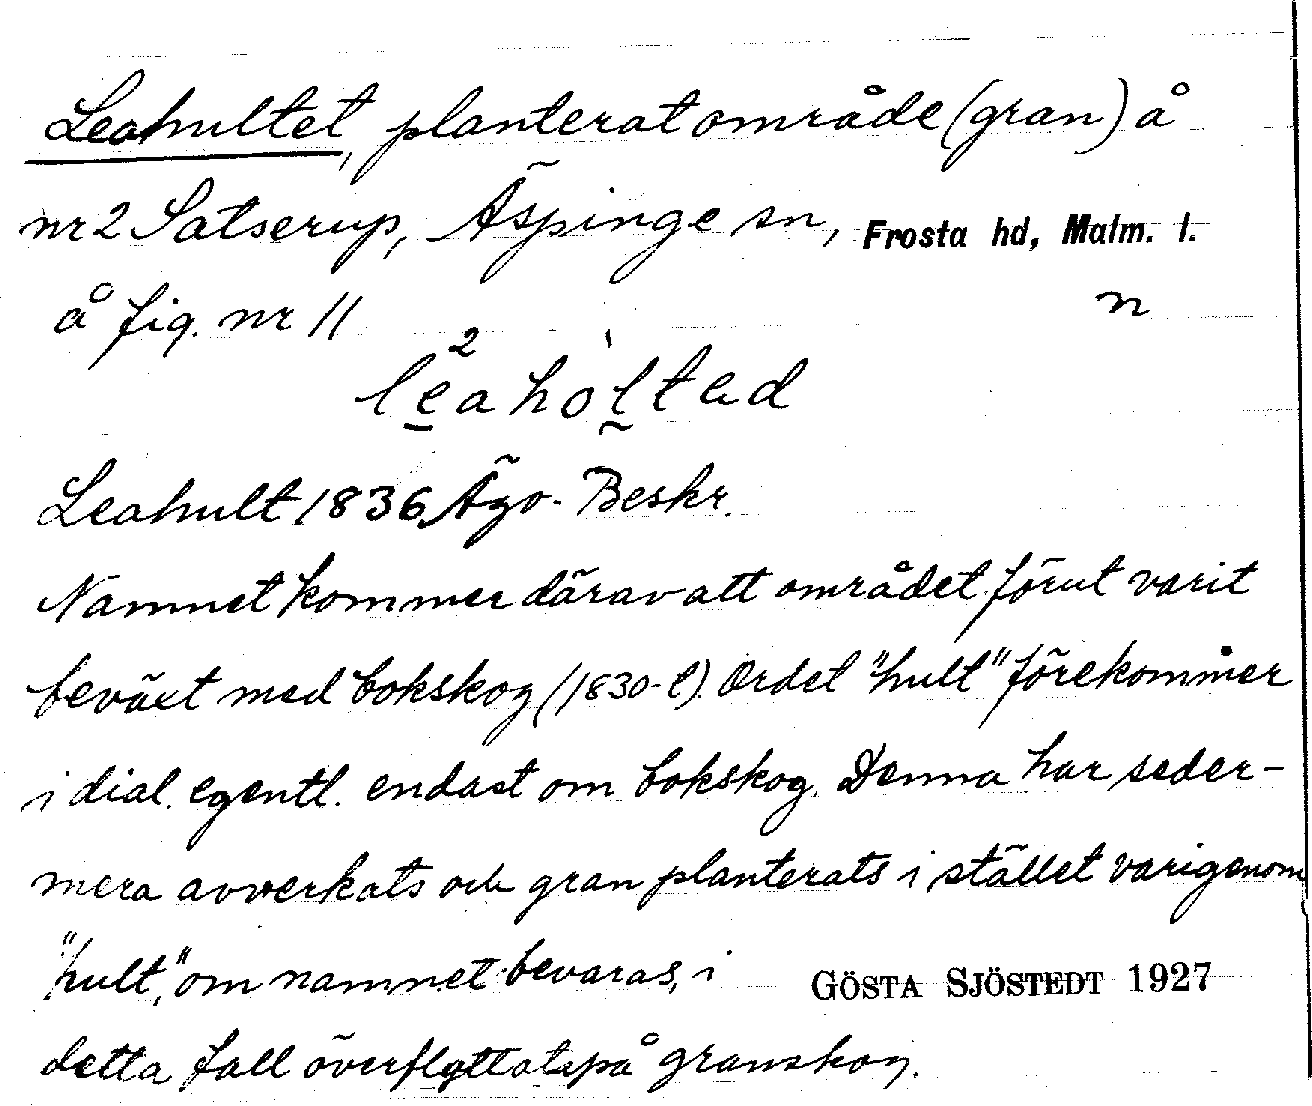 Leahultet, planterat område (gran) å
nr 2 Satserup, Äspinge sn, Frosta hd, Malm. l.
å fig. nr 11 n
Leahult 1836 Ägo-Beskr.
Namnet kommer därav att området förut varit
beväxt med bokskog (1830-t). Ordet "hult" förekommer
i dial. egentl. endast om bokskog. Denna har seder-
mera avverkats och gran planterats i stället varigenom
"hult", om namnet bevaras, i GÖSTA SJÖSTEDT 1927
detta fall överflyttats på granskog.